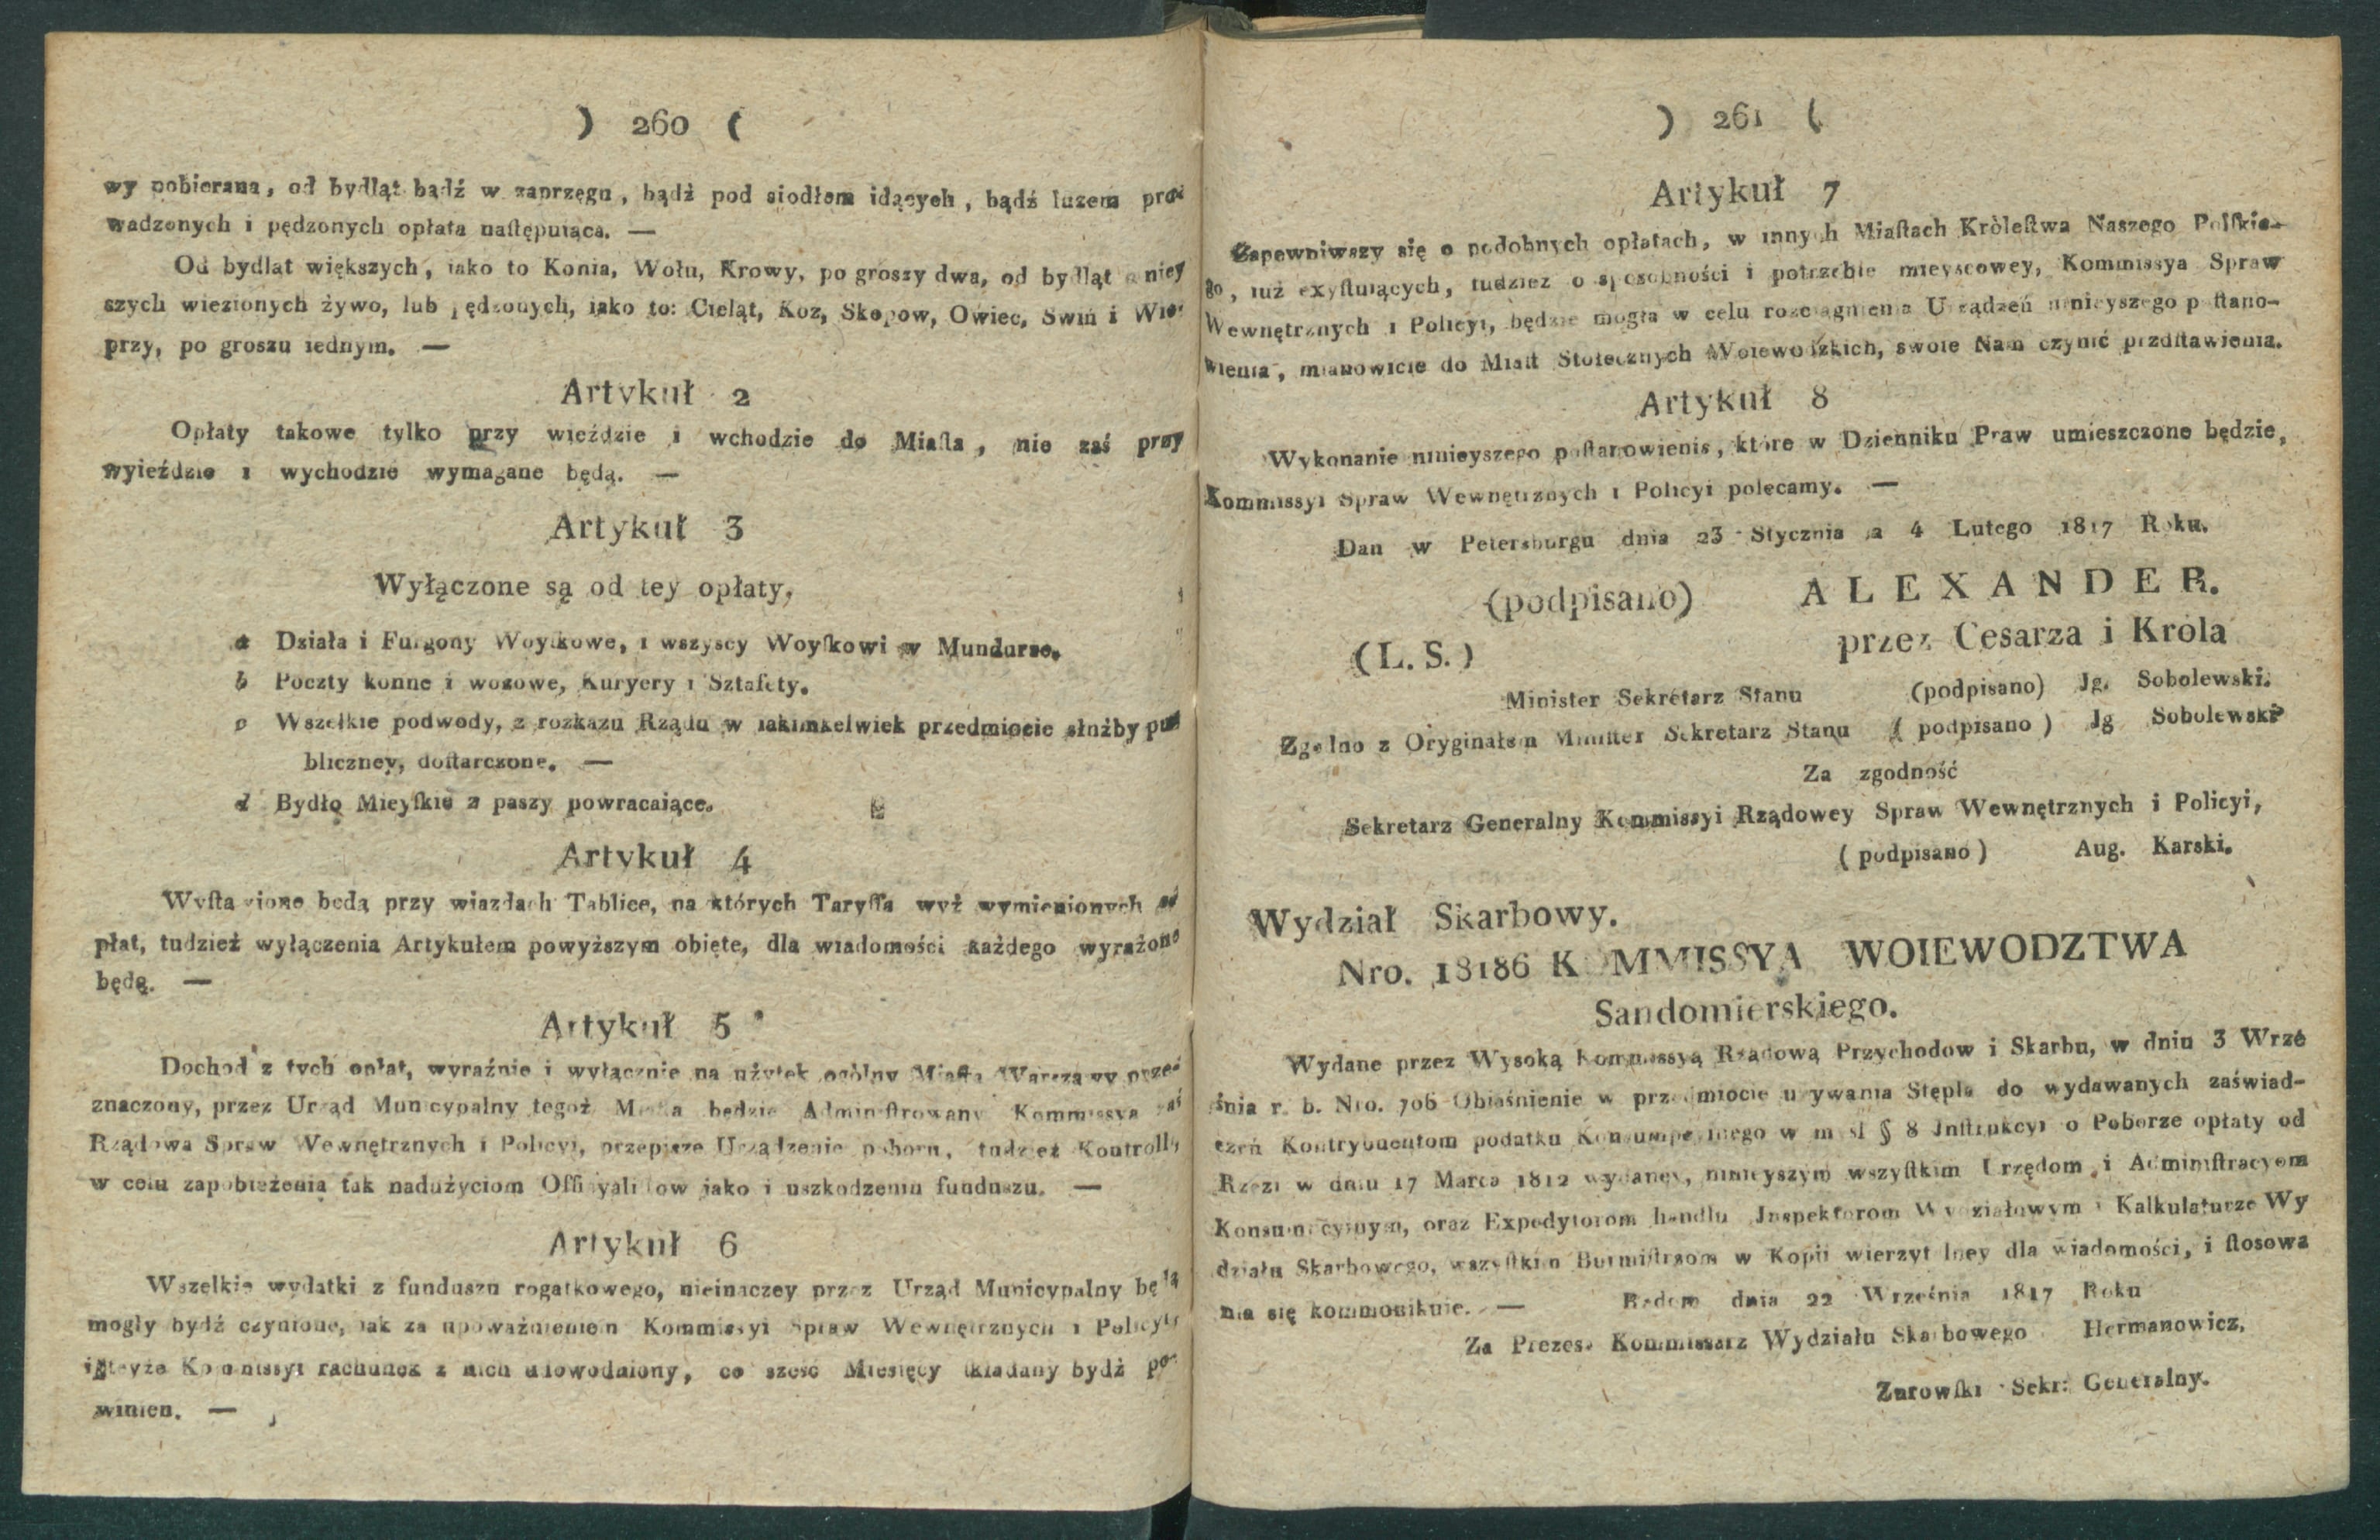 ) 260 (
wy pobierana, od bydląt bądź w zaprzęgu, bądź pod siodłem idących, bądź luzem pro-
wadzonych i pędzonych opłata naſtępuiąca. —
Od bydląt większych, iako to Konia, Wołu, Krowy, po groszy dwa, od bydląt mniey
szych wiezionych żywo, lub pędzonych, iako to: Cieląt, Koz, Skopow, Owiec, Swiń i Wie-
przy, po groszu iednym. —
Artykuł 2
Opłaty takowe tylko przy wieździe i wchodzie do Miaſta, nie zaś przy
wyieździe i wychodzie wymagane będą. —
Artykuł 3
Wyłączone są od tey opłaty,
a Działa i Furgony Woyſkowe, i wszyscy Woyſkowi w Mundurze.
b Poczty konne i wozowe, Kuryery i Sztafety.
c Wszelkie podwody, z rozkazu Rządu w iakimkelwiek przedmiocie służby pu-
bliczney, doſtarczone. —
d Bydło Mieyſkie z paszy powracaiące.
Artykuł 4
Wyſtawione będą przy wiazdach Tablice, na których Taryffa wyż wymienionych o-
płat, tudzież wyłączenia Artykułem powyższym obięte, dla wiadomości każdego wyrażone
będą. —
Artykuł 5
Dochod z tych opłat, wyraźnie i wyłącznie na użytek ogólny Miaſta Warszawy prze-
znaczony, przez Urząd Municypalny tegoż Miaſta będzie Adminiſtrowany Kommissya zaś
Rządowa Spraw Wewnętrznych i Policyi, przepisze Urządzenie poboru, tudzież Kontrolli,
w celu zapobieżenia tak nadużyciom Officyaliſtow jako i uszkodzeniu funduszu. —
Artykuł 6
Wszelkie wydatki z funduszu rogatkowego, nieinaczey przez Urząd Municypalny będą
mogly bydź czynione, iak za upoważnieniem Kommissyi Spraw Wewnętrznych i Policyi,
i teyże Kommissyi rachunek z nich udowodniony, co sześć Miesięcy składany bydź po-
winien. —
) 261 (
Artykuł 7
Zapewniwszy się o podobnych opłatach, w innych Miaſtach Kròleſtwa Naszego Polſkie-
go, iuż exyſtuiących, tudzież o sposobności i potrzebie mieyscowey, Kommissya Spraw
Wewnętrznych i Policyi, będzie mogła w celu rozciągnienia Urządzeń ninieyszego poſtano-
wienia, mianowicie do Miaſt Stołecznych Woiewodzkich, swoie Nam czynić przdſtawienia.
Artykuł 8
Wykonanie ninieyszego poſtanowienis, które w Dzienniku Praw umieszczone będzie,
Kommissyi Spraw Wewnętrznych i Policyi polecamy. —
Dan w Petersburgu dnia 23 Stycznia a 4 Lutego 1817 Roku.
(podpisano) ALEXANDER.
(L. S.) przez Cesarza i Króla
Minister Sekretarz Stanu (podpisano) Jg. Sobolewski.
Zgodno z Oryginałem Miniſter Sekretarz Stanu (podpisano) Jg Sobolewski
Za zgodność
Sekretarz Generalny Kommissyi Rządowey Spraw Wewnętrznych i Policyi,
(podpisano) Aug. Karski.
Wydział Skarbowy.
Nro. 18186 KOMMISSYA WOIEWODZTWA
Sandomierskiego.
Wydane przez Wysoką Kommissyą Rządową Przychodow i Skarbu, w dniu 3 Wrze
śnia r. b. Nro. 706 Obiaśnienie w przedmiocie używania Stępla do wydawanych zaświad-
czeń Kontrybuentom podatku Konsumpcyinego w myśl § 8 Jnſtrukcyi o Poborze opłaty od
Rzezi w dniu 17 Marca 1812 wydaney, ninieyszym wszyſtkim Urzędom i Adminiſtracyom
Konsumpcyinym, oraz Expedytorom handlu Jnspektorom Wydziałowym i Kalkulaturze Wy
działu Skarbowego, wszyſtkim Burmiſtrzom w Kopii wierzytelney dla wiadomości, i ſtosowa
nia się kommunikuie. — Radom dnia 22 Września 1817 Roku
Za Prezesa Kommissarz Wydziału Skarbowego Hermanowicz,
Zurowſki Sekr: Generalny.